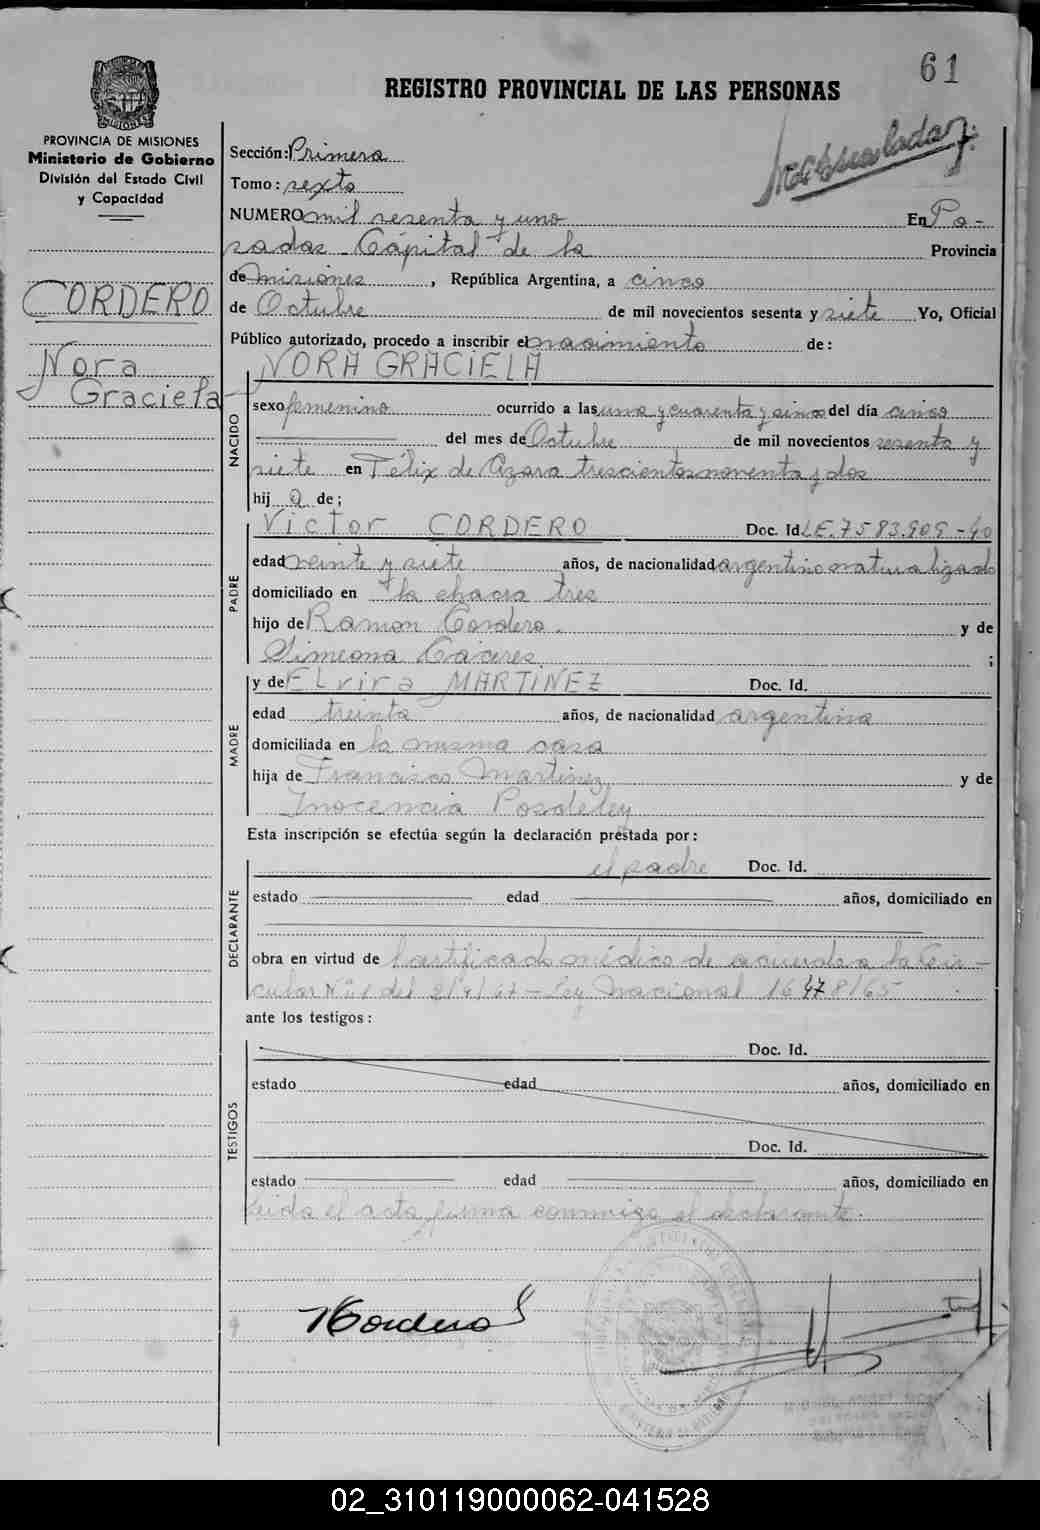 61
REGISTRO PROVINCIAL DE LAS PERSONAS
PROVINCIA DE MISIONES
Ministerio de Gobierno
División del Estado Civil
y Capacidad
MISIONES
CORDERO
Nora
Graciela
Sección: Primera
Tomo: sexto
NUMERO mil sesenta y uno En Po-
sadas Cápital de la Provincia
de Misiones, República Argentina, a cinco
de Octubre de mil novecientos sesenta y siete Yo, Oficial
Público autorizado, procedo a inscribir el nacimiento de:
NORA GRACIELA
NACIDO
sexo femenino ocurrido a las una y cuarenta y cinco del día cinco
del mes de Octubre de mil novecientos sesenta y
siete en Félix de Azara trescientos noventa y dos
hij a de;
PADRE
Victor CORDERO Doc. Id. L.E. 7583.909-40
edad veinte y siete años, de nacionalidad argentino naturalizado
domiciliado en la chacra tres
hijo de Ramon Cordero. y de
Simeona Cáceres ;
MADRE
y de Elvira MARTINEZ Doc. Id.
edad treinta años, de nacionalidad argentina
domiciliada en la misma casa
hija de Francisco Martinez y de
Inocencia
Esta inscripción se efectúa según la declaración prestada por:
DECLARANTE
el padre Doc. Id.
estado edad años, domiciliado en
obra en virtud de certificado médico de acuerdo a la Cir-
cular Nº 1 del 21/4/67 - Ley Nacional 16478/65
ante los testigos:
TESTIGOS
Doc. Id.
estado edad años, domiciliado en
Doc. Id.
estado edad años, domiciliado en
Leida el acta firma conmigo el declarante.
VCordero
02_310119000062-041528